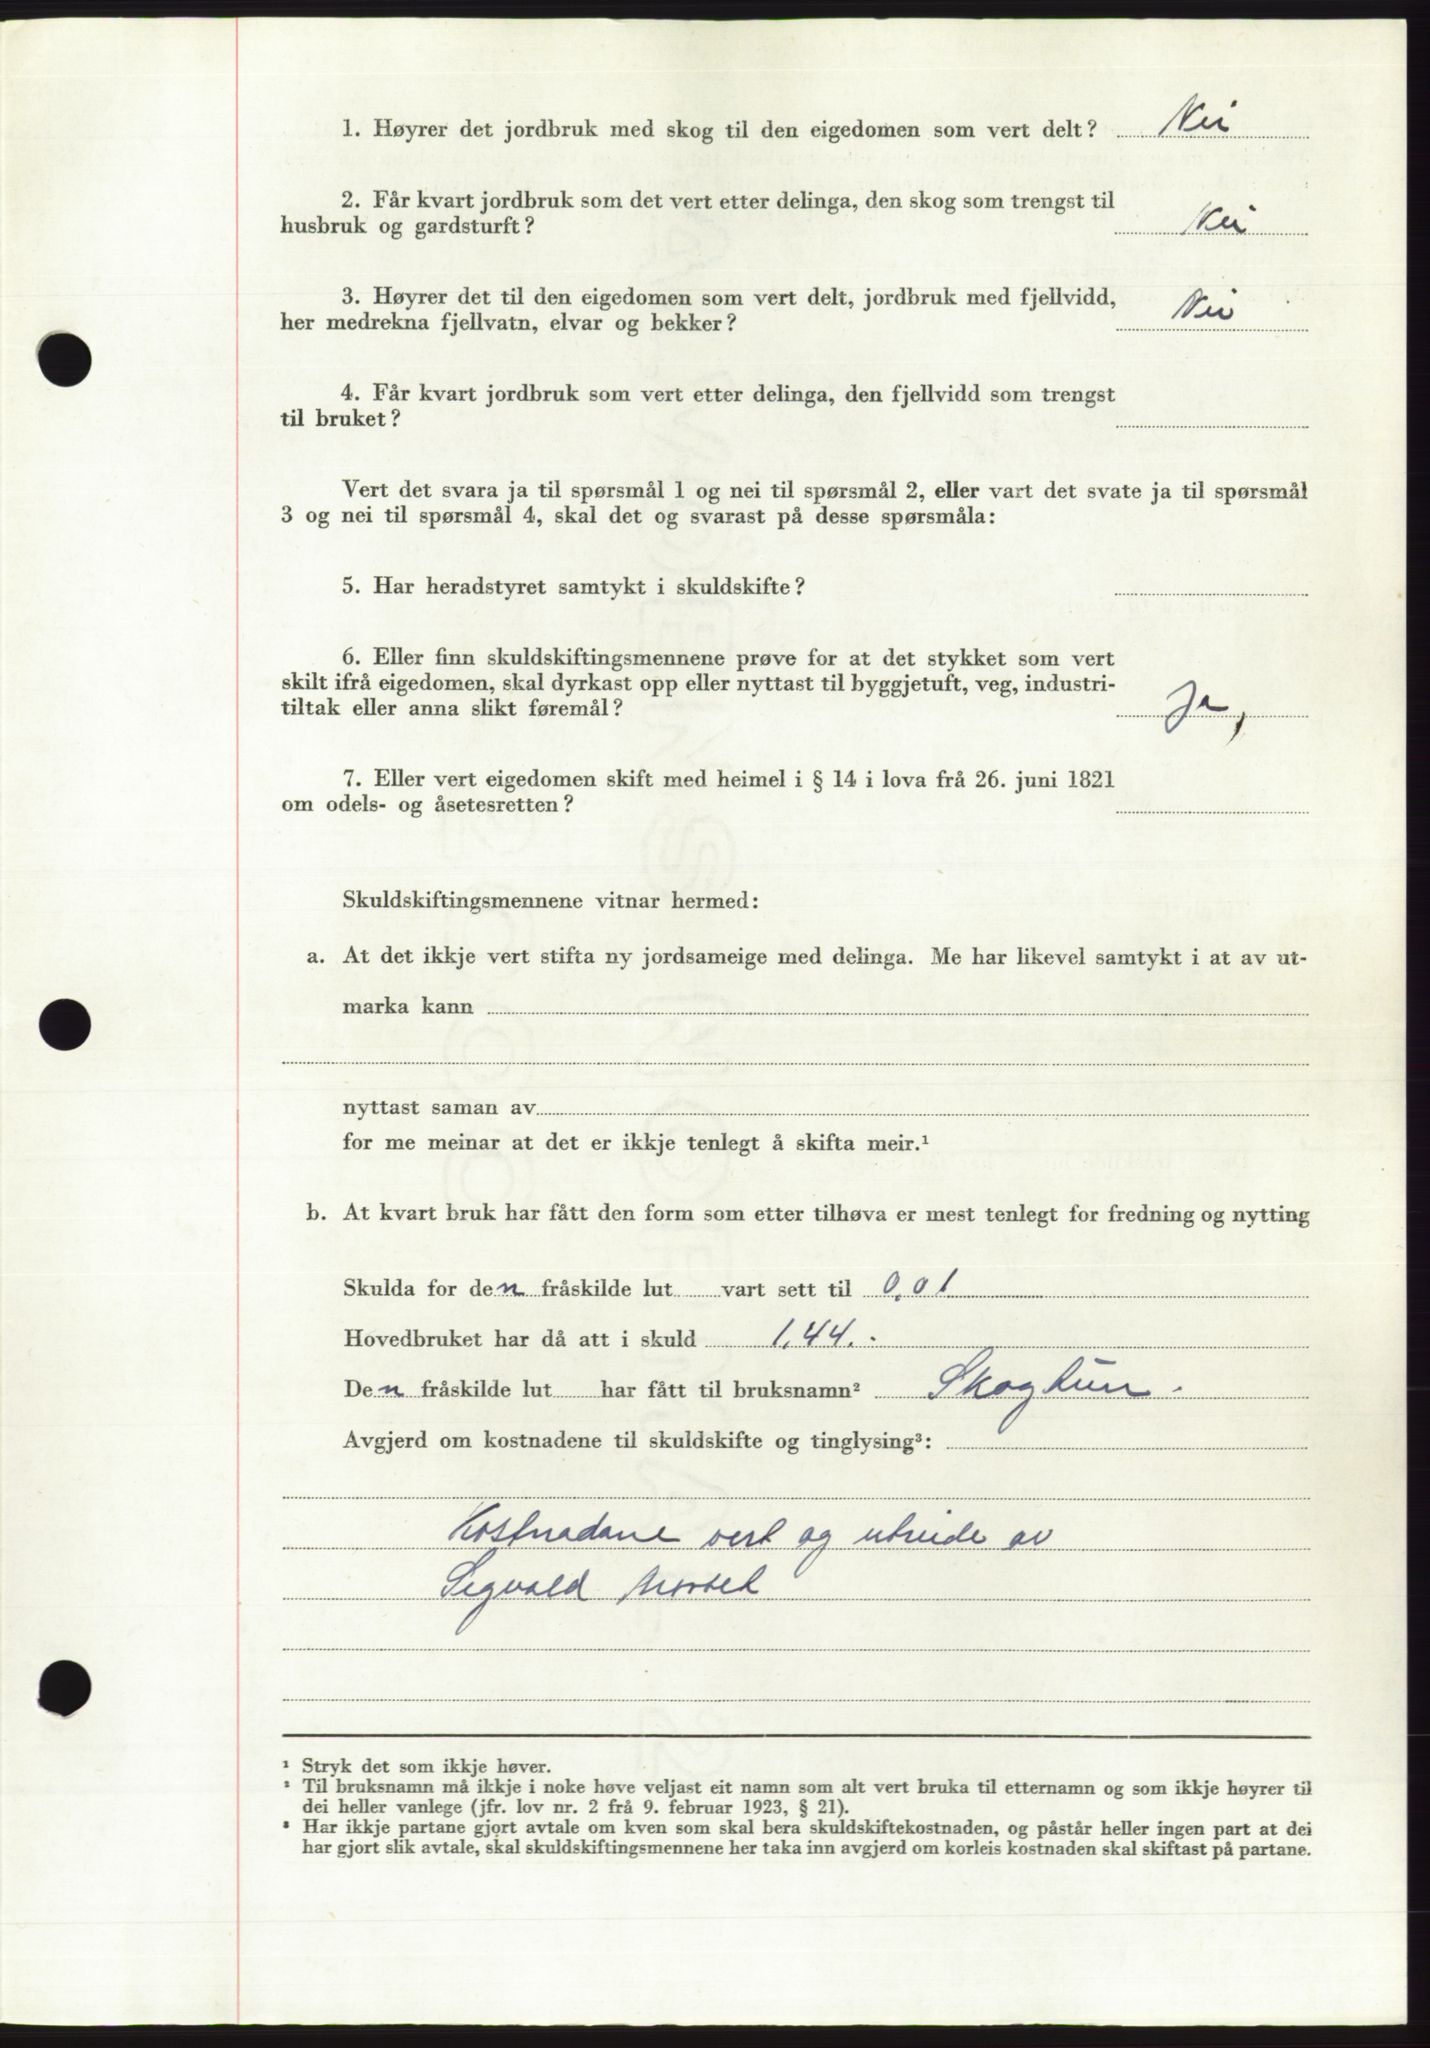 1. Høyrer det jordbruk med skog til den eigedomen som vert delt? Nei
2. Får kvart jordbruk som det vert etter delinga, den skog som trengst til
husbruk og gardsturft? Nei
3. Høyrer det til den eigedomen som vert delt, jordbruk med fjellvidd,
her medrekna fjellvatn, elvar og bekker? Nei
4. Får kvart jordbruk som vert etter delinga, den fjellvidd som trengst
til bruket?
Vert det svara ja til spørsmål 1 og nei til spørsmål 2, eller vart det svate ja til spørsmål
3 og nei til spørsmål 4, skal det og svarast på desse spørsmåla:
5. Har heradstyret samtykt i skuldskifte?
6. Eller finn skuldskiftingsmennene prøve for at det stykket som vert
skilt ifrå eigedomen, skal dyrkast opp eller nyttast til byggjetuft, veg, industri-
tiltak eller anna slikt føremål? Ja,
7. Eller vert eigedomen skift med heimel i § 14 i lova frå 26. juni 1821
om odels- og åsetesretten?
Skuldskiftingsmennene vitnar hermed:
a. At det ikkje vert stifta ny jordsameige med delinga. Me har likevel samtykt i at av ut-
marka kann
nyttast saman av
for me meinar at det er ikkje tenlegt å skifta meir.¹
b. At kvart bruk har fått den form som etter tilhøva er mest tenlegt for fredning og nytting
Skulda for den fråskilde lut vart sett til 0,01
Hovedbruket har då att i skuld 1,44.
Den fråskilde lut har fått til bruksnamn² Skogtun.
Avgjerd om kostnadene til skuldskifte og tinglysing³:
Kostnadane vert og utreide av
Sigvald
¹ Stryk det som ikkje høver.
² Til bruksnamn må ikkje i noke høve veljast eit namn som alt vert bruka til etternamn og som ikkje høyrer til
dei heller vanlege (jfr. lov nr. 2 frå 9. februar 1923, § 21).
³ Har ikkje partane gjort avtale om kven som skal bera skuldskiftekostnaden, og påstår heller ingen part at dei
har gjort slik avtale, skal skuldskiftingsmennene her taka inn avgjerd om korleis kostnaden skal skiftast på partane.